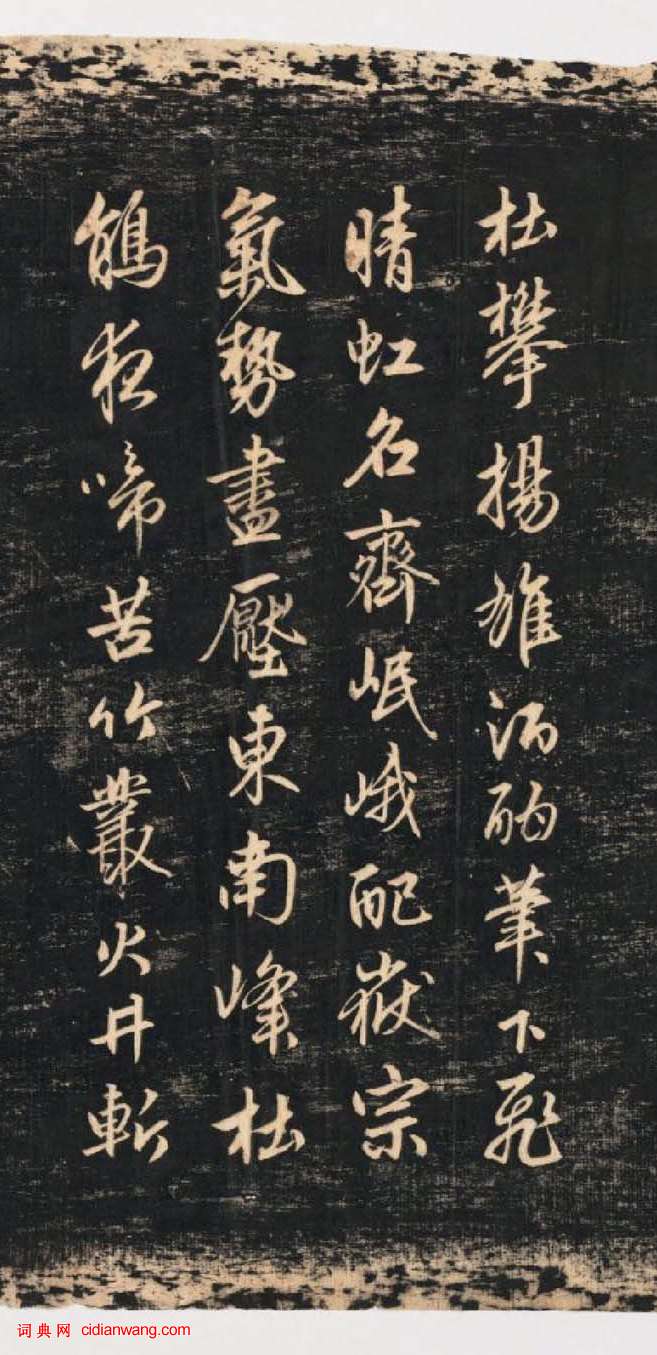 杜攀揚雄酒酣筆下飛
晴虹名齊岷峨配嶽宗
氣勢盡壓東南峰杜
鵑夜啼苦竹叢火井斬
词典网 cidianwang.com